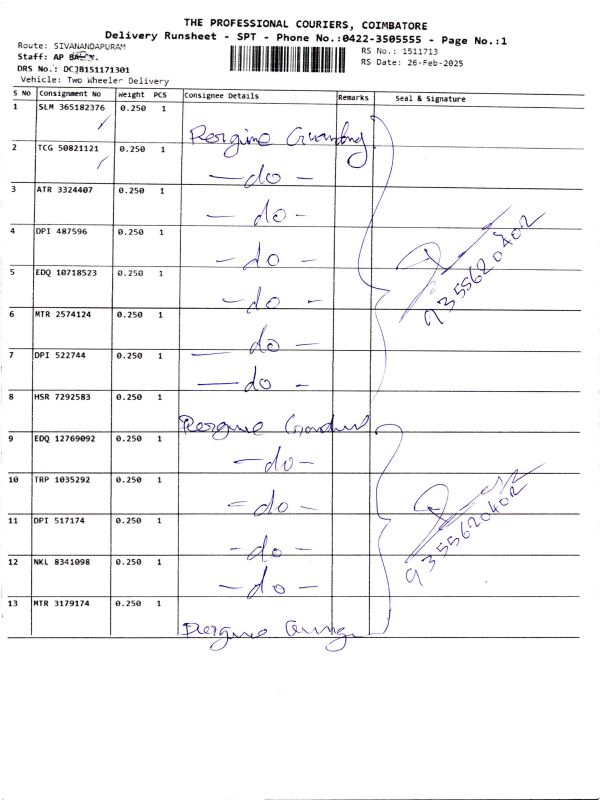 THE PROFESSIONAL COURIERS, COIMBATORE
Delivery Runsheet - SPT - Phone No.:0422-3505555 - Page No.:1
Route: SIVANANDAPURAM
Staff: AP
DRS No.: DCJB151171301
Vehicle: Two Wheeler Delivery
RS No.: 1511713
RS Date: 26-Feb-2025
S No Consignment No Weight PCS Consignee Details Remarks Seal & Signature
1 SLM 365182376 0.250 1
2 TCG 50821121 0.250 1
-do-
3 ATR 3324407 0.250 1
-do-
4 DPI 487596 0.250 1
-do-
5 EDQ 10718523 0.250 1
-do-
6 MTR 2574124 0.250 1
-do-
7 DPI 522744 0.250 1
-do-
8 HSR 7292583 0.250 1
9 EDQ 12769092 0.250 1
-do-
10 TRP 1035292 0.250 1
-do-
11 DPI 517174 0.250 1
-do-
12 NKL 8341098 0.250 1
-do-
13 MTR 3179174 0.250 1
9355620402
9355620402